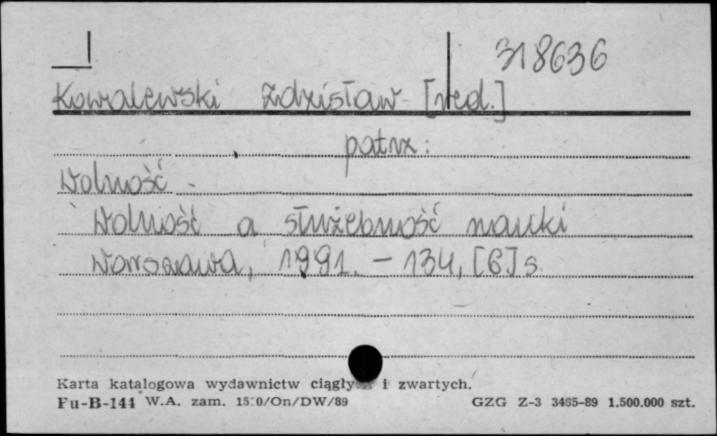 318636
Kowalewski Zdzisław [red.]
patrz:
Wolność
Wolność a służebność nauki
Warszawa, 1991. - 134, [6] s
Karta katalogowa wydawnictw i zwartych.
Fu-B-144 W.A. zam. GZG Z-3 3465-89 1.500.000 szt.